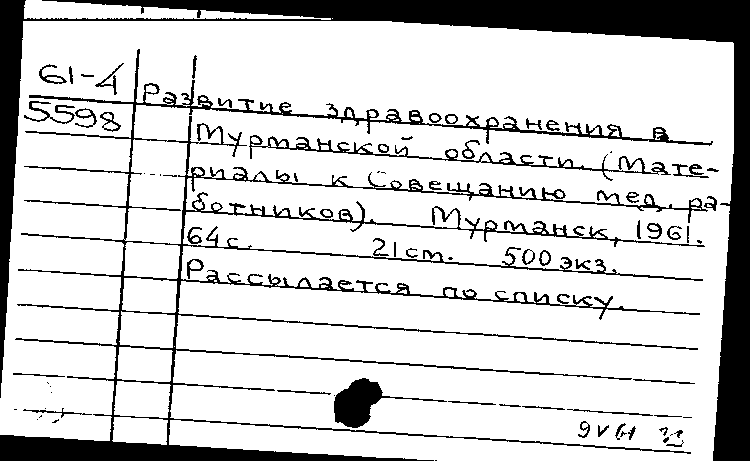 61-4
5598
Развитие здравоохранения в
Мурманской области. (Мате-
риалы к Совещанию мед. ра-
ботников). Мурманск, 1961.
64с. 21см. 500 экз.
Рассылается по списку.
9 V 61